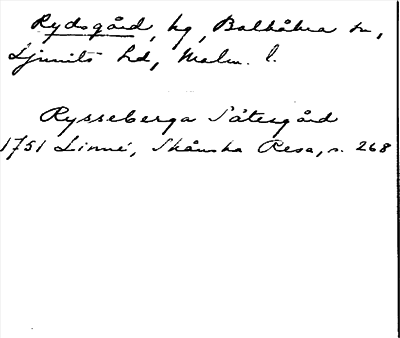 Rydsgård, hg, Balkåkra sn,
Ljunits hd, Malm. l.
Rysseberga Sätesgård
1751 Linné, Skånska Resa, s. 268